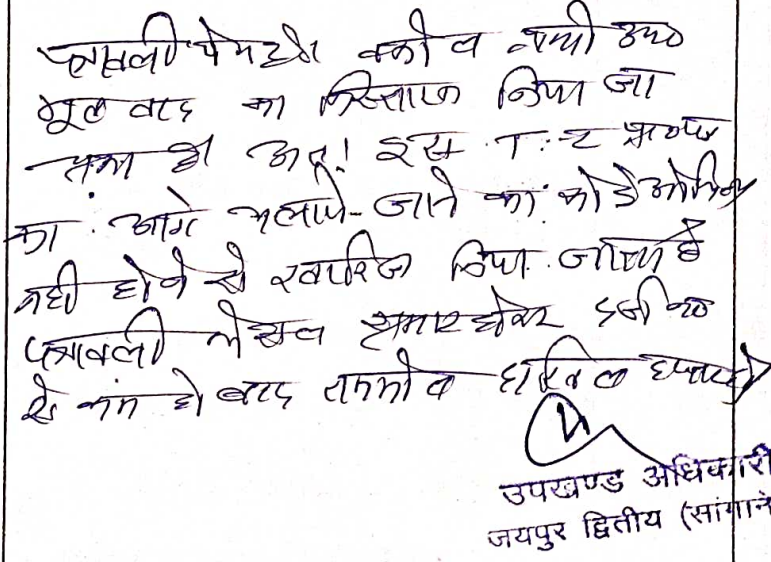 पत्रावली पेश हुई।
मूल वाद का निस्तारण किया जा
चुका है अतः इस T.I प्रकरण
का आगे चलाये जाने का कोई औचित्य
नही होने से खारिज किया जाता है
पत्रावली फैसल शुमार होकर दर्ज नं०
से कम हो बाद तकमील दाखिल दफ्तर हो
उपखण्ड अधिकारी
जयपुर द्वितीय (सांगाने